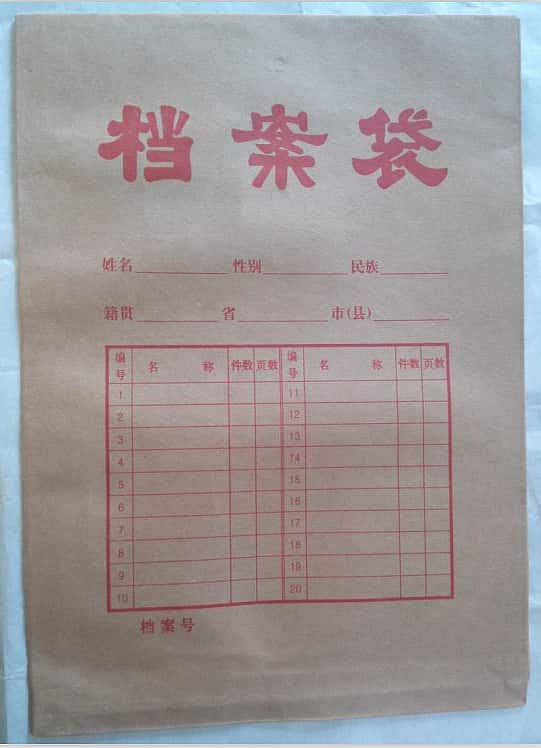 档案袋
姓名 性别 民族
籍贯 省 市(县)
编号 名 称 件数 页数 编号 名 称 件数 页数
1 11
2 12
3 13
4 14
5 15
6 16
7 17
8 18
9 19
10 20
档案号